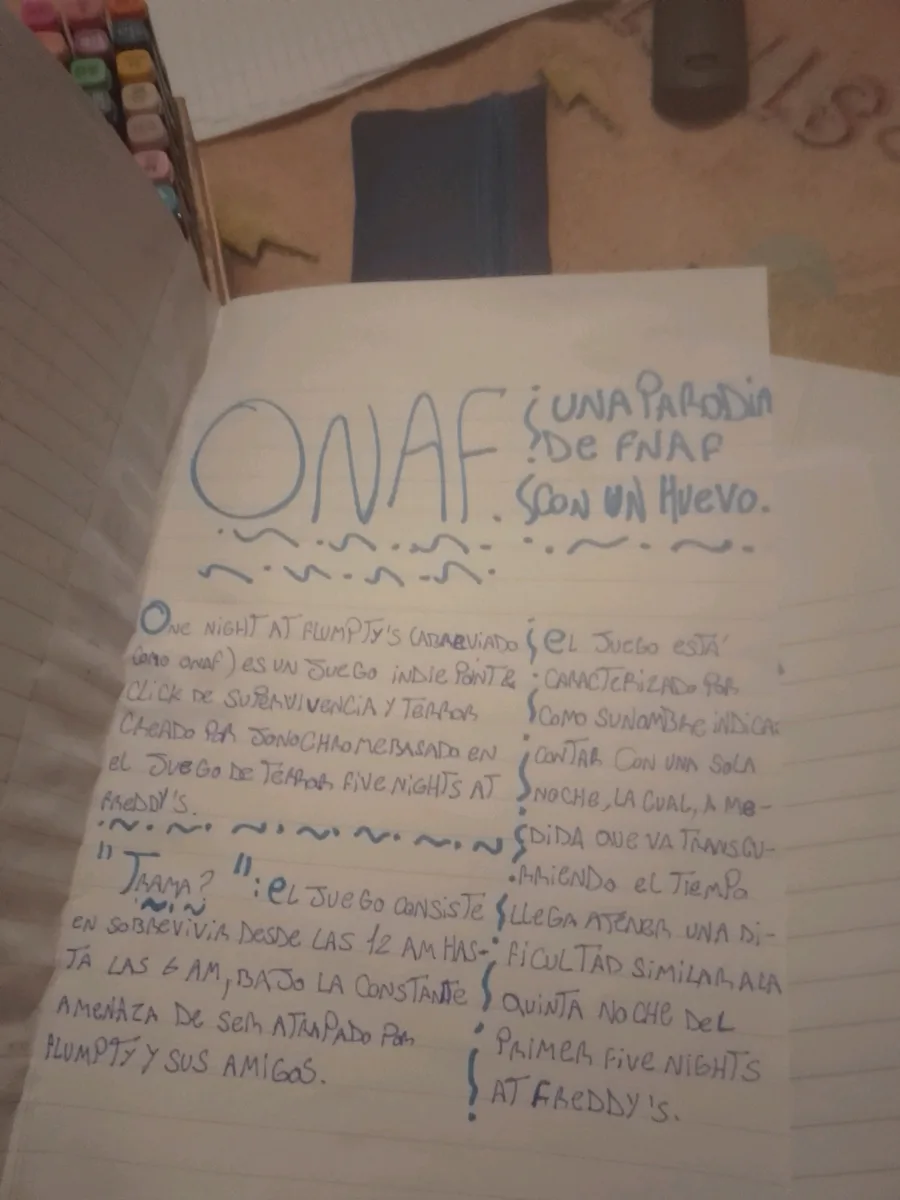 ONAF.
UNA PARODIA
DE FNAF
CON UN HUEVO.
ONE NIGHT AT FLUMPTY'S (ABREVIADO
COMO ONAF) ES UN JUEGO INDIE POINT &
CLICK DE SUPERVIVENCIA Y TERROR
CREADO POR JONOCHROME BASADO EN
EL JUEGO DE TERROR FIVE NIGHTS AT
FREDDY'S.
"TRAMA?": EL JUEGO CONSISTE
EN SOBREVIVIR DESDE LAS 12 AM HAS-
TA LAS 6 AM, BAJO LA CONSTANTE
AMENAZA DE SER ATRAPADO POR
FLUMPTY Y SUS AMIGOS.
EL JUEGO ESTÁ
CARACTERIZADO POR
COMO SU NOMBRE INDICA:
CONTAR CON UNA SOLA
NOCHE, LA CUAL, A ME-
DIDA QUE VA TRANSCU-
RRIENDO EL TIEMPO
LLEGA A TENER UNA DI-
FICULTAD SIMILAR A LA
QUINTA NOCHE DEL
PRIMER FIVE NIGHTS
AT FREDDY'S.